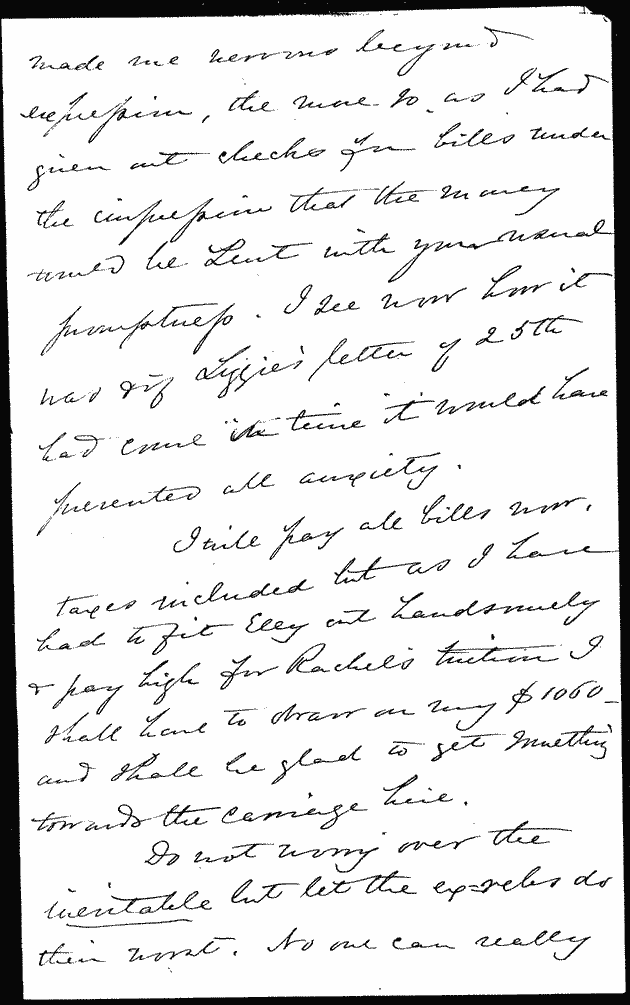 made me nervous beyond
expression, the more so, as I had
given out checks for bills under
the impression that the money
would be sent with your usual
promptness. I see now how it
was & if Lizzie's letter of 25th
had come in time it would have
prevented all anxiety.
I will pay all bills now,
taxes included but as I have
had to fit Elly out handsomely
& pay high for Rachel's tuition I
shall have to draw on my $1060_
and shall be glad to get something
towards the carriage hire.
Do not worry over the
inevitable but let the ex=rebs do
their worst. No one can really